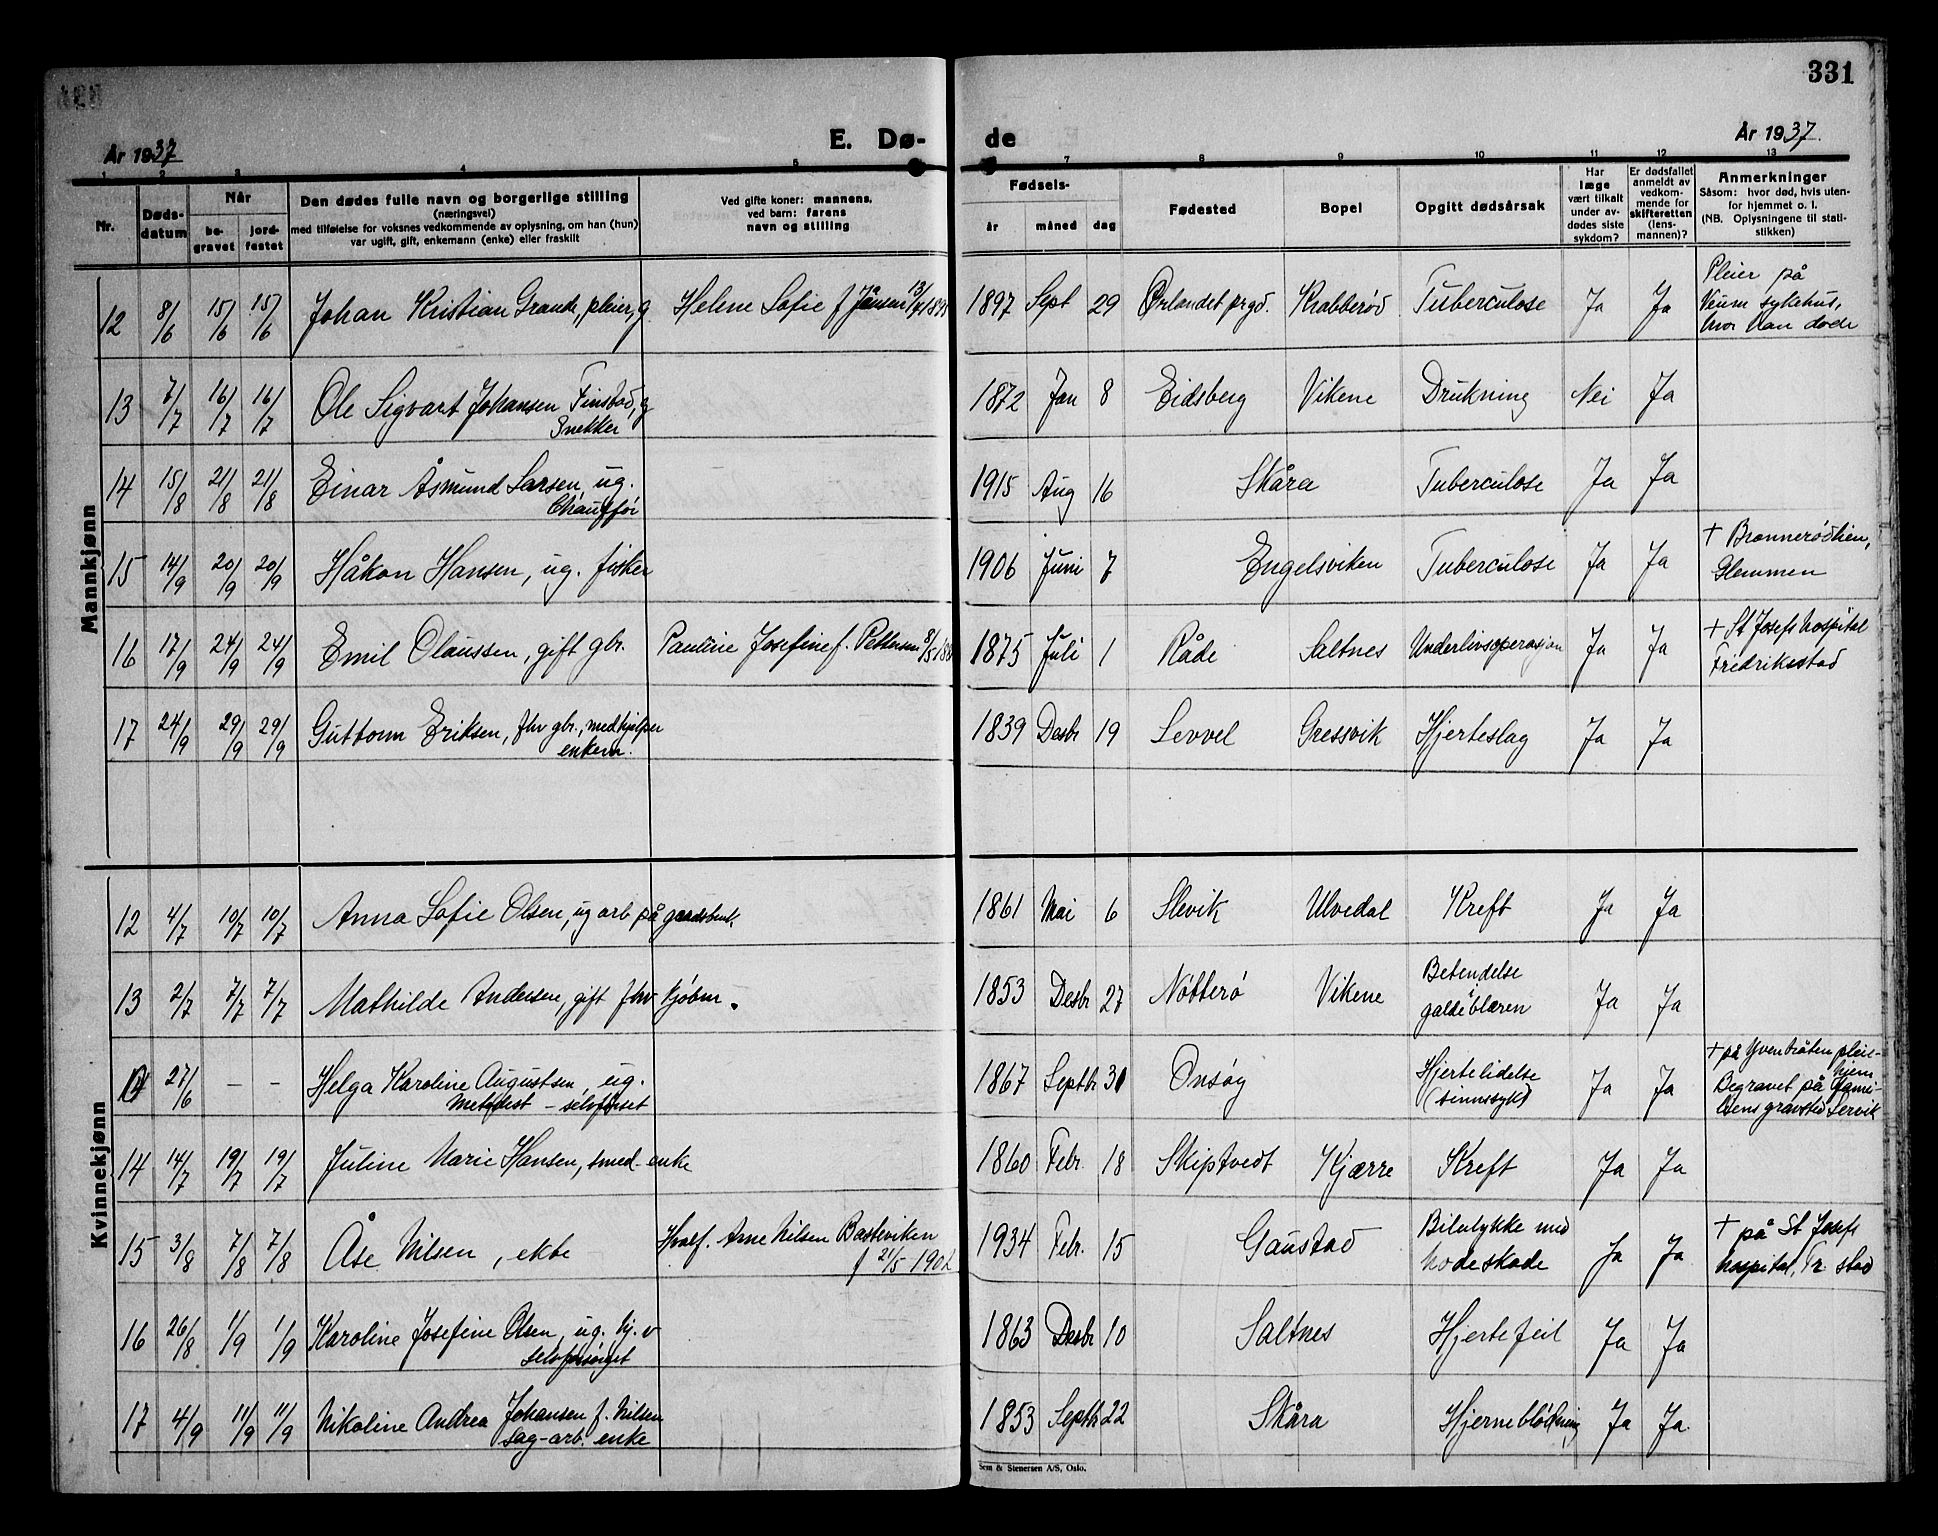 331
År 1937
E. Dø-
de
År 1937.
1 2 3 4 5 7 8 9 10 11 12 13
Nr.
Døds-
datum
Når
be-
gravet
jord-
festet
Den dødes fulle navn og borgerlige stilling
(næringsvei)
med tilføielse for voksnes vedkommende av oplysning, om han (hun)
var ugift, gift, enkemann (enke) eller fraskilt
Ved gifte koner: mannens,
ved barn: farens
navn og stilling
Fødsels-
år måned dag
Fødested
Bopel
Opgitt dødsårsak
Har
læge
vært tilkalt
under av-
dødes siste
sykdom?
Er dødsfallet
anmeldt av
vedkom-
mende for
skifteretten
(lens-
mannen)?
Anmerkninger
Såsom: hvor død, hvis uten-
for hjemmet o. l.
(NB. Oplysningene til stati-
stikken)
Mannkjønn
12 8/6 15/6 15/6 Johan Kristian Grande, pleier, g. Helene Sofie f Jansen 1897 Sept 29 Ørlandet prgd. Krabberød Tuberculose Ja Ja Pleier på
Veum sykehus,
hvor han døde
13 7/7 16/7 16/7 Ole Sigvart Johansen Finstad, g
Snekker 1872 Jan 8 Eidsberg Vikene Drukning Nei Ja
14 15/8 21/8 21/8 Einar Åsmund Larsen, ug.
Chauffør 1915 Aug 16 Skåra Tuberculose Ja Ja
15 14/9 20/9 20/9 Håkon Hansen, ug. fisker 1906 Juni 7 Engelsviken Tuberculose Ja Ja + Brønnerødlien,
Glemmen
16 17/9 24/9 24/9 Emil Olaussen, gift gbr. Pauline Josefine f. Pettersen 1875 Juli 1 Råde Saltnes Underlivsoperasjon Ja Ja + St Josefs hospital
Fredriksstad
17 24/9 29/9 29/9 Guttorm Eriksen, fhv gbr., medhjelper
enkem. 1839 Desbr 19 Levvel Gressvik Hjerteslag Ja Ja
Kvinnekjønn
12 4/7 10/7 10/7 Anna Sofie Olsen, ug arb på gaardsbruk. 1861 Mai 6 Slevik Ulvedal Kreft Ja Ja
13 2/7 7/7 7/7 Mathilde Andersen, gift fhv kjøbm. 1853 Desbr 27 Nøtterø Vikene Betendelse
i galdeblæren Ja Ja
27/6 - - Helga Karoline Augustsen, ug.
Metodist - selvforset 1867 Septbr Onsøy Hjertelidelse
(sinnssyk) Ja Ja + på Yvenbråten pleie-
hjem
Begravet på fami-
liens gravsted
14 14/7 19/7 19/7 Juline Marie Hansen, smed-enke 1860 Febr. 18 Skiptvedt Kjærre Kreft Ja Ja
15 3/8 7/8 7/8 Åse Nilsen, ekte Hvalf. Arne Nilsen Basteviken
f 21/5-1902 1934 Febr. 15 Gaustad Bilulykke med
hodeskade Ja Ja + på St Josefs
hospital, Fr. stad
16 26/8 1/9 1/9 Karoline Josefine Olsen, ug. hj. v
selvforsørget 1863 Desbr 10 Saltnes Hjertefeil Ja Ja
17 4/9 11/9 11/9 Nikoline Andrea Johansen f. Nilsen
sag-arb. enke 1853 Septbr 22 Skåra Hjerneblødning Ja Ja.
Sem & Stenersen A/S, Oslo.